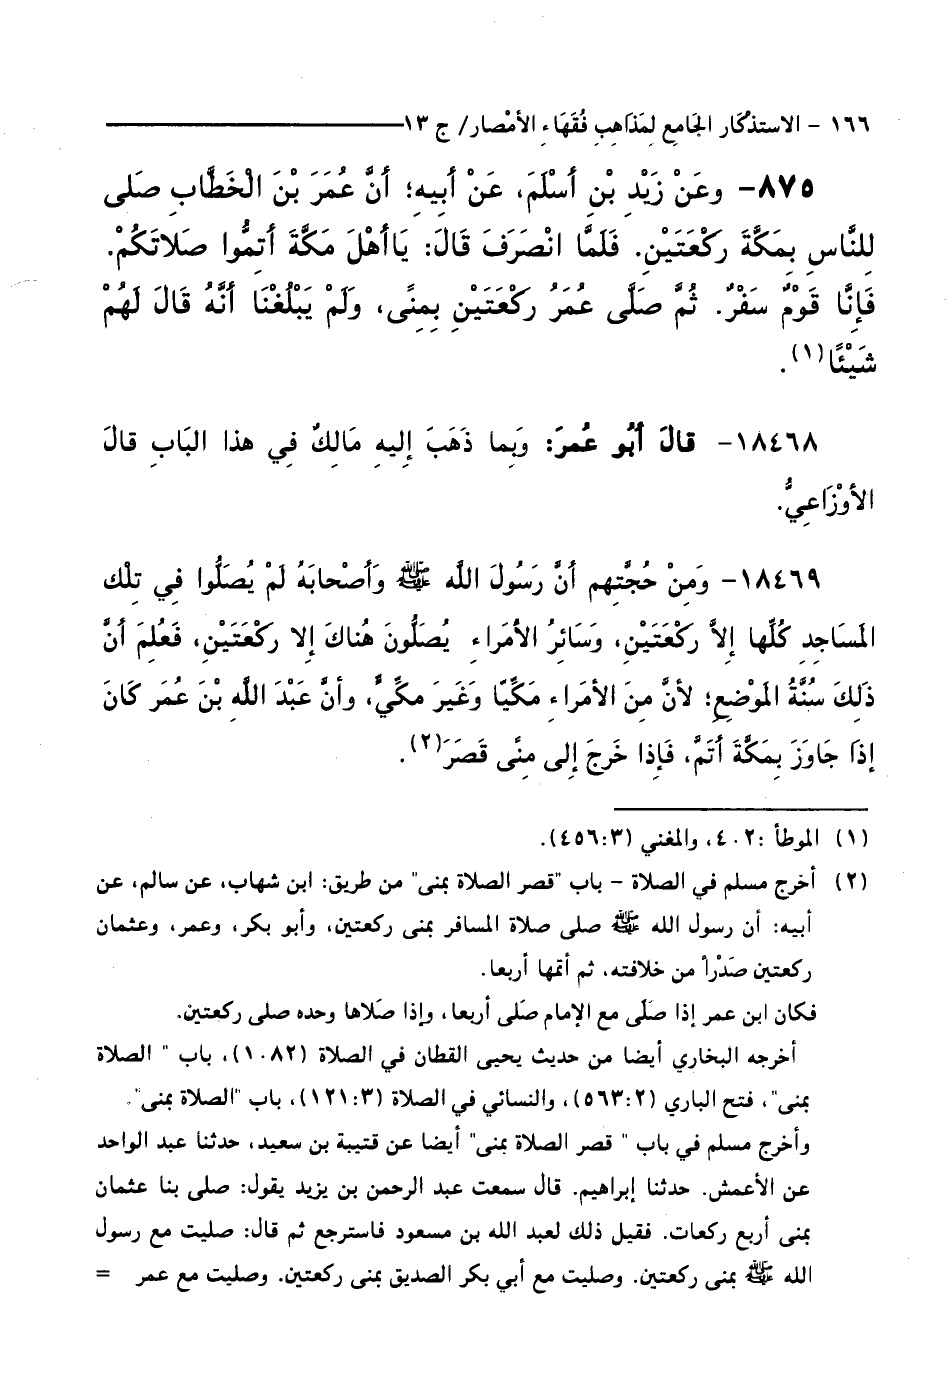 ١٦٦ - الاستذكار الجامع لمذاهبِ فُقَهاءِ الأمْصار/ ج ١٣
٨٧٥- وعَنْ زَيْدِ بْنِ أَسْلَمَ، عَنْ أَبِيهِ؛ أَنَّ عُمَرَ بْنَ الْخَطَّابِ صَلى
للنَّاسِ بِمَكَّةَ رَكْعَتَيْنِ. فَلَمَّا انْصَرَفَ قَالَ: يَاأَهْلَ مَكَّةَ أَتِمُّوا صَلاتَكُمْ.
فَإِنَّا قَوْمٌ سَفْرٌ. ثُمَّ صَلَّى عُمَرُ رَكْعَتَيْنِ بِمِنًى، وَلَمْ يَبْلُغْنَا أَنَّهُ قَالَ لَهُمْ
شَيْئًا(١).
١٨٤٦٨- قالَ أَبُو عُمرَ: وَبِما ذَهَبَ إِليهِ مَالِكٌ فِي هذا البَابِ قالَ
الأوْزَاعِيُّ.
١٨٤٦٩- وَمِنْ حُجَّتِهِم أَنَّ رَسُولَ اللَّه ﷺ وَأَصْحابَهُ لَمْ يُصَلُّوا فِي تِلْكَ
المَسَاجِدِ كُلِّها إِلاَّ رَكْعَتَيْنِ، وَسَائِرُ الأُمَراءِ يُصَلُّونَ هُناكَ إِلا رَكْعَتَيْنِ، فَعُلِمَ أَنَّ
ذَلِكَ سُنَّةُ المَوْضِعِ؛ لأنَّ مِنَ الأمَراءِ مَكِّيًّا وَغَيرَ مكِّيٍّ، وأنَّ عَبْدَ اللَّهِ بْنَ عُمَر كَانَ
إِذَا جَاوَزَ بِمَكَّةَ أَتَمَّ، فَإِذا خَرَجَ إِلى مِنًى قَصَرَ(٢).
(١) الموطأ :٤٠٢، والمغني (٤٥٦:٣).
(٢) أخرج مسلم في الصلاة - باب "قصر الصلاة بمنى" من طريق: ابن شهاب، عن سالم، عن
أبيه: أن رسول الله ﷺ صلى صلاة المسافر بمنى ركعتين، وأبو بكر، وعمر، وعثمان
ركعتين صَدْراً من خلافته، ثم أتمها أربعا.
فكان ابن عمر إذا صَلّى مع الإمام صَلى أربعا، وإذا صَلاها وحده صلى ركعتين.
أخرجه البخاري أيضا من حديث يحيى القطان في الصلاة (١٠٨٢)، باب " الصلاة
بمنى"، فتح الباري (٥٦٣:٢)، والنسائي في الصلاة (١٢١:٣)، باب "الصلاة بمنى".
وأخرج مسلم في باب " قصر الصلاة بمنى" أيضا عن قتيبة بن سعيد، حدثنا عبد الواحد
عن الأعمش. حدثنا إبراهيم. قال سمعت عبد الرحمن بن يزيد يقول: صلى بنا عثمان
بمنى أربع ركعات. فقيل ذلك لعبد الله بن مسعود فاسترجع ثم قال: صليت مع رسول
الله ﷺ بمنى ركعتين. وصليت مع أبي بكر الصديق بمنى ركعتين. وصليت مع عمر =